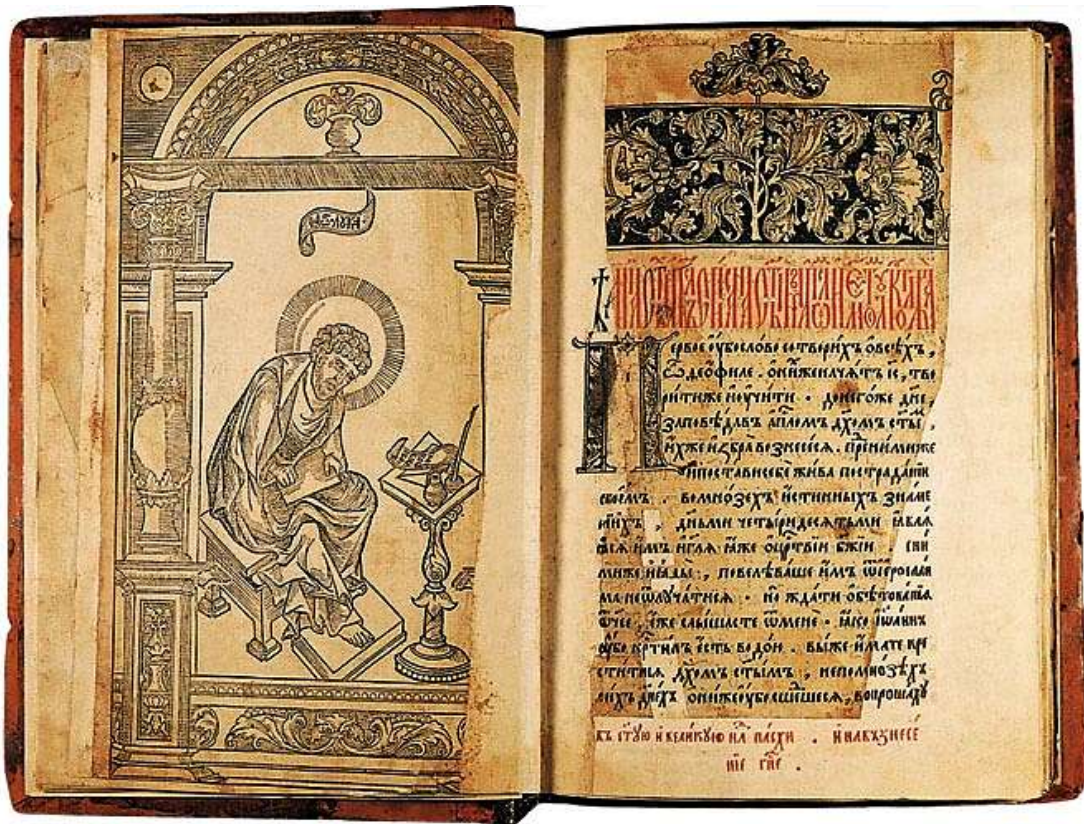 Первое ѹбо слово сотворихъ ѻ всѣхъ,
ѽ ѳеофиле . ѻ нихже начѧтъ іс, тво
рити же и ѹчити . до негоже дн҃е,
заповѣдавъ ап҃лом дх҃омъ ст҃ы,
ихже избра вознесесѧ .
и постави себѐ жива по страданїи
своемъ . во мнозехъ истинныхъ знаме
нїихъ , дньми четыридесѧтьми ꙗвлѧ
ѧсѧ имъ и гл҃ѧ ꙗже о црⷭтвїи бж҃їи . сни
миже и ꙗды , повелѣваше имъ ѿ іерⷭали
ма не ѿлꙋчатисѧ . но ждати обѣтованїѧ
ѻч҃ее , еже слышасте ѿ мене . ꙗко іѡаннъ
ѹбо крⷭтилъ есть водою . вы же имате кре
ститисѧ дх҃омъ ст҃ымъ , не по мнозѣхъ
сихъ днехъ ѻниже ѹбо вопрошахꙋ
въ ст҃ꙋю и великꙋю нлⷧѧ пасхи . и на възнесе
нїе гнⷭе .